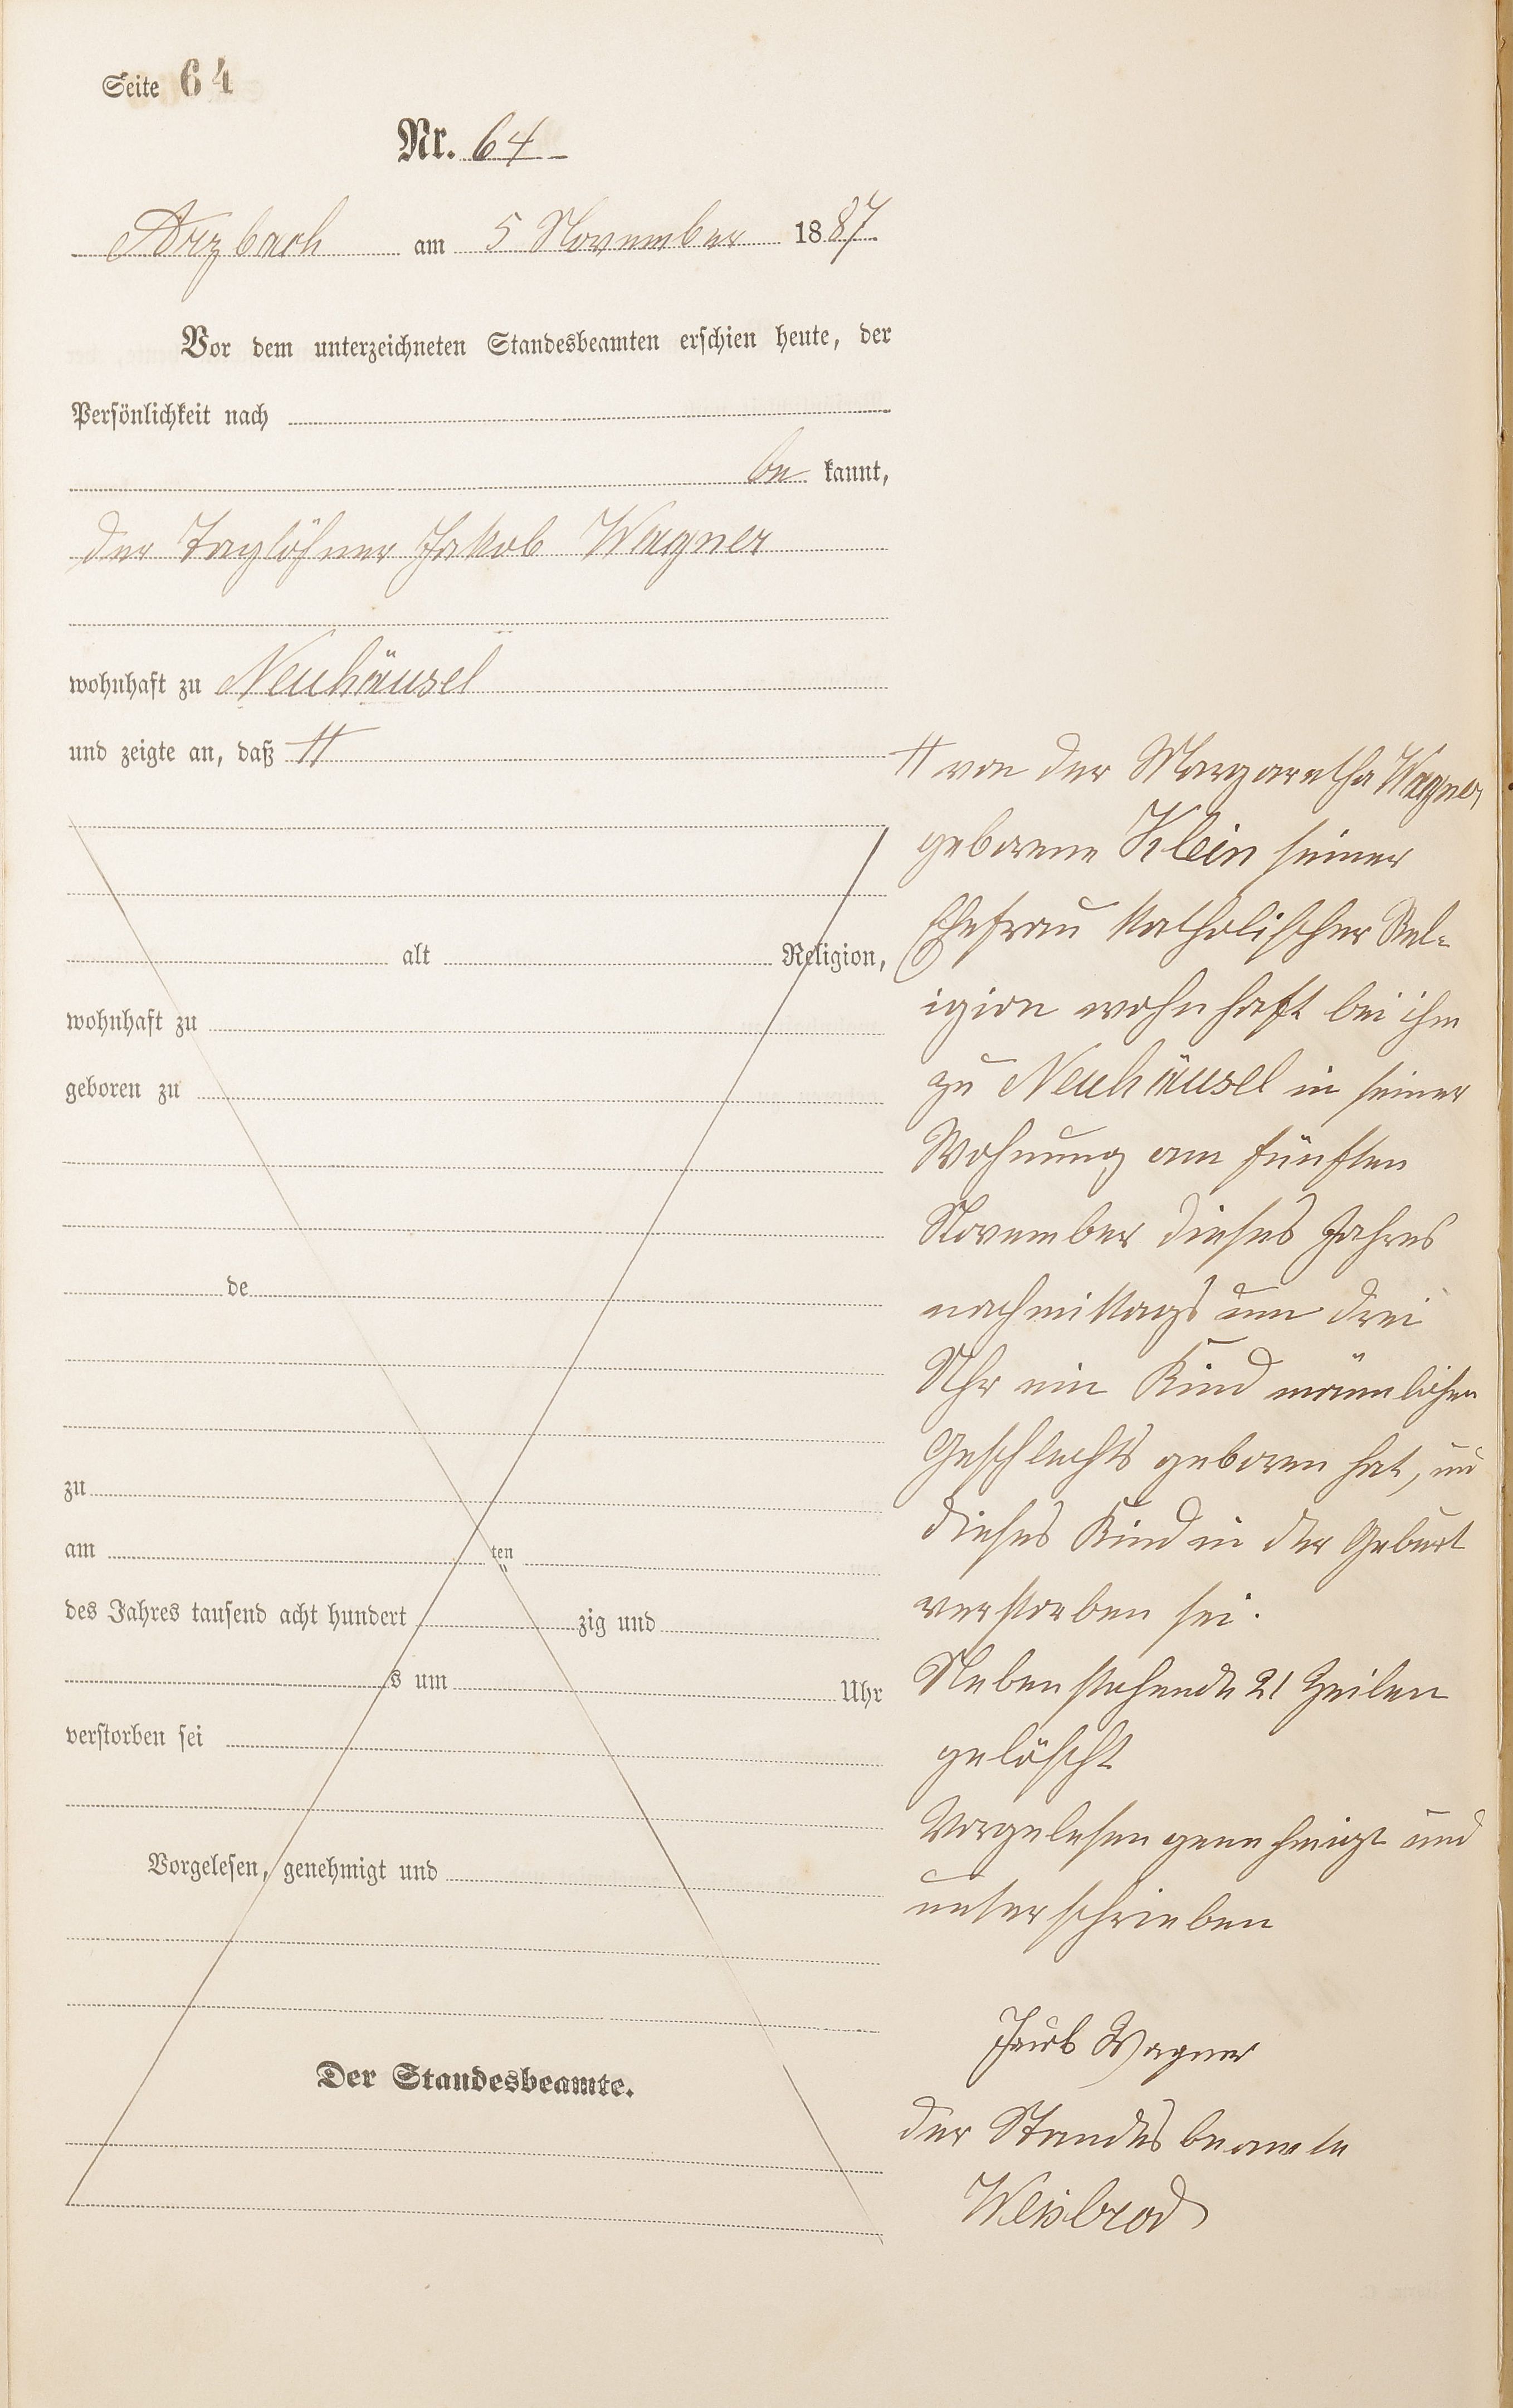 Seite 64
Nr. 64
Arzbach am 5 November 1887.
Vor dem unterzeichneten Standesbeamten erschien heute, der
Persönlichkeit nach
be kannt,
der Taglöhner Jakob Wagner
wohnhaft zu Neuhäusel
und zeigte an, daß H
alt Religion,
wohnhaft zu
geboren zu
de
zu
am ten
des Jahres tausend acht hundert zig und
s um Uhr
verstorben sei
Vorgelesen, genehmigt und
Der Standesbeamte.
H von der Margaretha Wagner
geborene Klein seiner
Ehefrau katholischer Rel-
igion wohnhaft bei ihm
zu Neuhäusel in seiner
Wohnung am fünften
November dieses Jahres
nachmittags um drei
Uhr ein Kind männlichen
Geschlechts geboren hat, und
dieses Kind in der Geburt
verstorben sei.
Nebenstehende 21 Zeilen
gelöscht
Vorgelesen genehmigt und
unterschrieben
Jacob Wagner
der Standesbeamte
Weisbrod